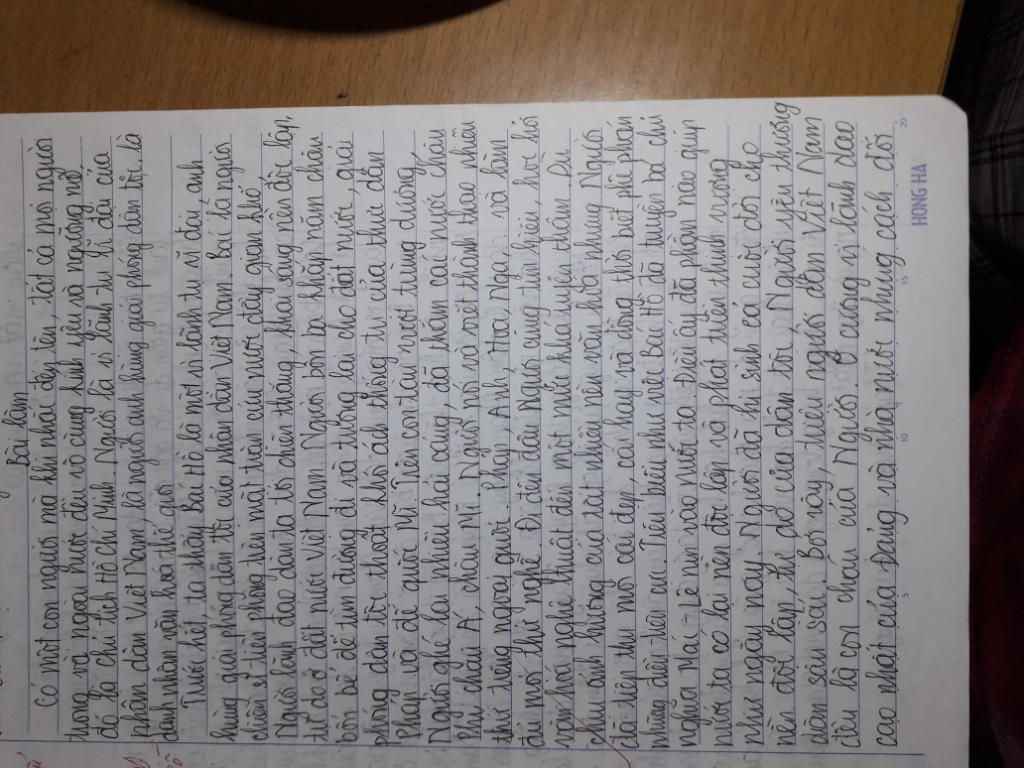 Bài làm
Có một con người mà khi nhắc đến tên, tất cả mọi người
trong và ngoài nước đều vô cùng kính yêu và ngưỡng mộ
đó là chủ tịch Hồ Chí Minh. Người là vị lãnh tụ vĩ đại của
nhân dân Việt Nam, là người anh hùng giải phóng dân tộc, là
danh nhân văn hoá thế giới.
Trước hết, ta thấy Bác Hồ là một vị lãnh tụ vĩ đại, anh
hùng giải phóng dân tộc của nhân dân Việt Nam. Bác là người
chiến sĩ tiên phong trên mặt trận cứu nước đầy gian khó.
Người lãnh đạo dân ta tới chiến thắng, khai sáng nền độc lập,
tự do ở đất nước Việt Nam. Người bôn ba khắp năm châu
bốn bể để tìm đường đi và tương lai cho đất nước, giải
phóng dân tộc thoát khỏi ách thống trị của thực dân
Pháp và đế quốc Mĩ. Trên con tàu vượt trùng dương,
Người ghé lại nhiều hải cảng, đã thăm các nước châu
Phi, châu Á, châu Mĩ. Người nói và viết thành thạo nhiều
thứ tiếng ngoại quốc: Pháp, Anh, Hoa, Nga, và làm
đủ mọi thứ nghề. Đi đến đâu Người cũng tìm hiểu, học hỏi
văn hóa nghệ thuật đến một mức khá uyên thâm. Dù
chịu ảnh hưởng của tất nhiên nền văn hóa nhưng Người
đã tiếp thu mọi cái đẹp, cái hay và đồng thời biết phê phán
những điều tiêu cực. Tiêu biểu như việc Bác Hồ đã truyền bá chủ
nghĩa Mác - Lê nin vào nước ta. Điều ấy đã phần nào giúp
nước ta có lại nền độc lập và phát triển thịnh vượng
như ngày nay. Người đã hi sinh cả cuộc đời cho
nền độc lập, tự do của dân tộc. Người yêu thương
dân sâu sắc. Bởi vậy, triệu người dân Việt Nam
đều là con cháu của Người. Ở cương vị lãnh đạo
cao nhất của Đảng và nhà nước nhưng cách đối
5
10
15
20
HONG HA